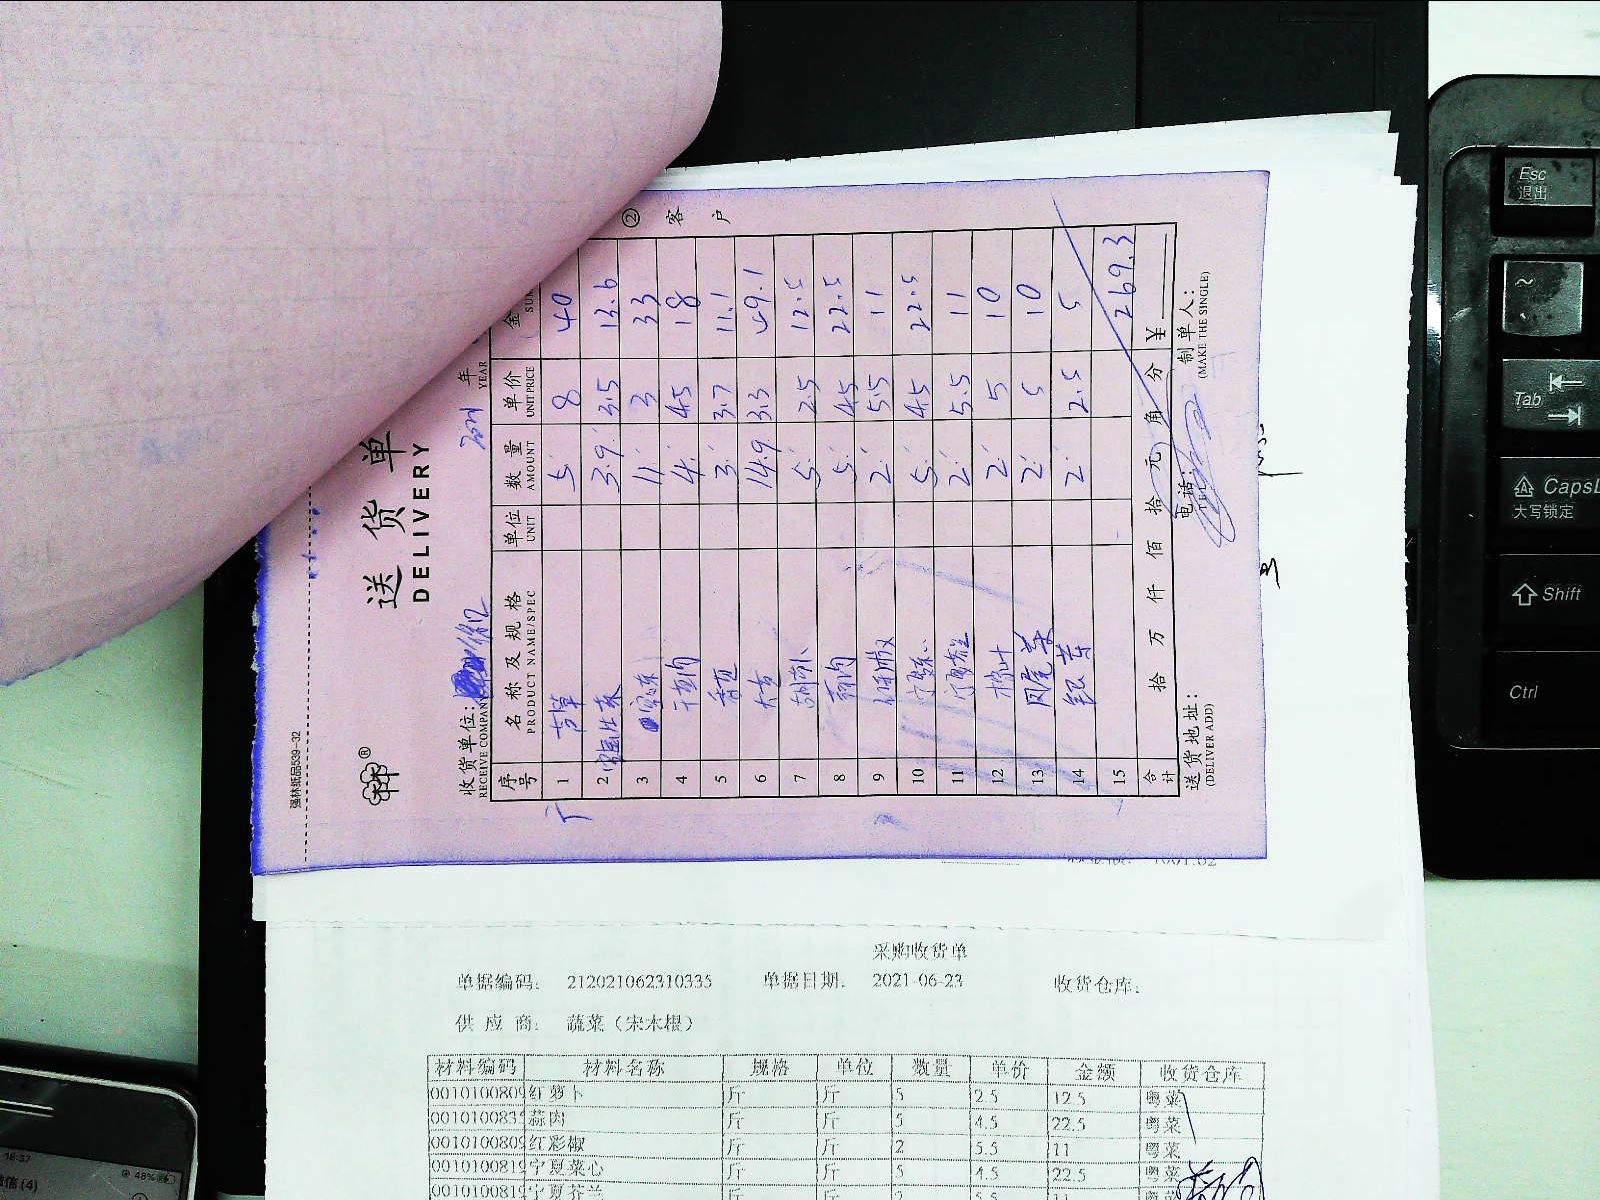 强林纸品539-32
送货单
DELIVERY
② 客户
收货单位:
RECEIVE COMPAN
2021 年
YEAR
序号 名称及规格 单位 数量 单价 金
PRODUCT NAME/SPEC UNIT AMOUNT UNIT PRICE SUM
1 芥兰 5 8 40
2 3.9 3.5 13.6
3 11 3 33
4 4 4.5 18
5 香芹 3 3.7 11.1
6 14.9 3.3 49.1
7 胡萝卜 5 2.5 12.5
8 蒜肉 5 4.5 22.5
9 红椒 2 5.5 11
10 宁夏菜心 5 4.5 22.5
11 宁夏芥兰 2 5.5 11
12 2 5 10
13 凤尾菜 2 5 10
14 2 2.5 5
15 269.3
合计 拾 万 仟 佰 拾 元 角 分 ¥
送货地址:
(DELIVER ADD)
电话:
TEL
制单人:
(MAKE THE SINGLE)
采购收货单
单据编码: 212021062310335 单据日期: 2021-06-23 收货仓库:
供应商: 蔬菜(宋木根)
材料编码 材料名称 规格 单位 数量 单价 金额 收货仓库
0010100809 红萝卜 斤 斤 5 2.5 12.5 粤菜
001010083 蒜肉 斤 斤 5 4.5 22.5 粤菜
0010100809 红彩椒 斤 斤 2 5.5 11 粤菜
0010100819 宁夏菜心 斤 斤 5 4.5 22.5 粤菜
0010100819 宁夏芥兰 斤 斤 2 5.5 11 粤菜
Esc
退出
~
Tab
CapsL
大写锁定
Shift
Ctrl
18:37
48%
微信(4)